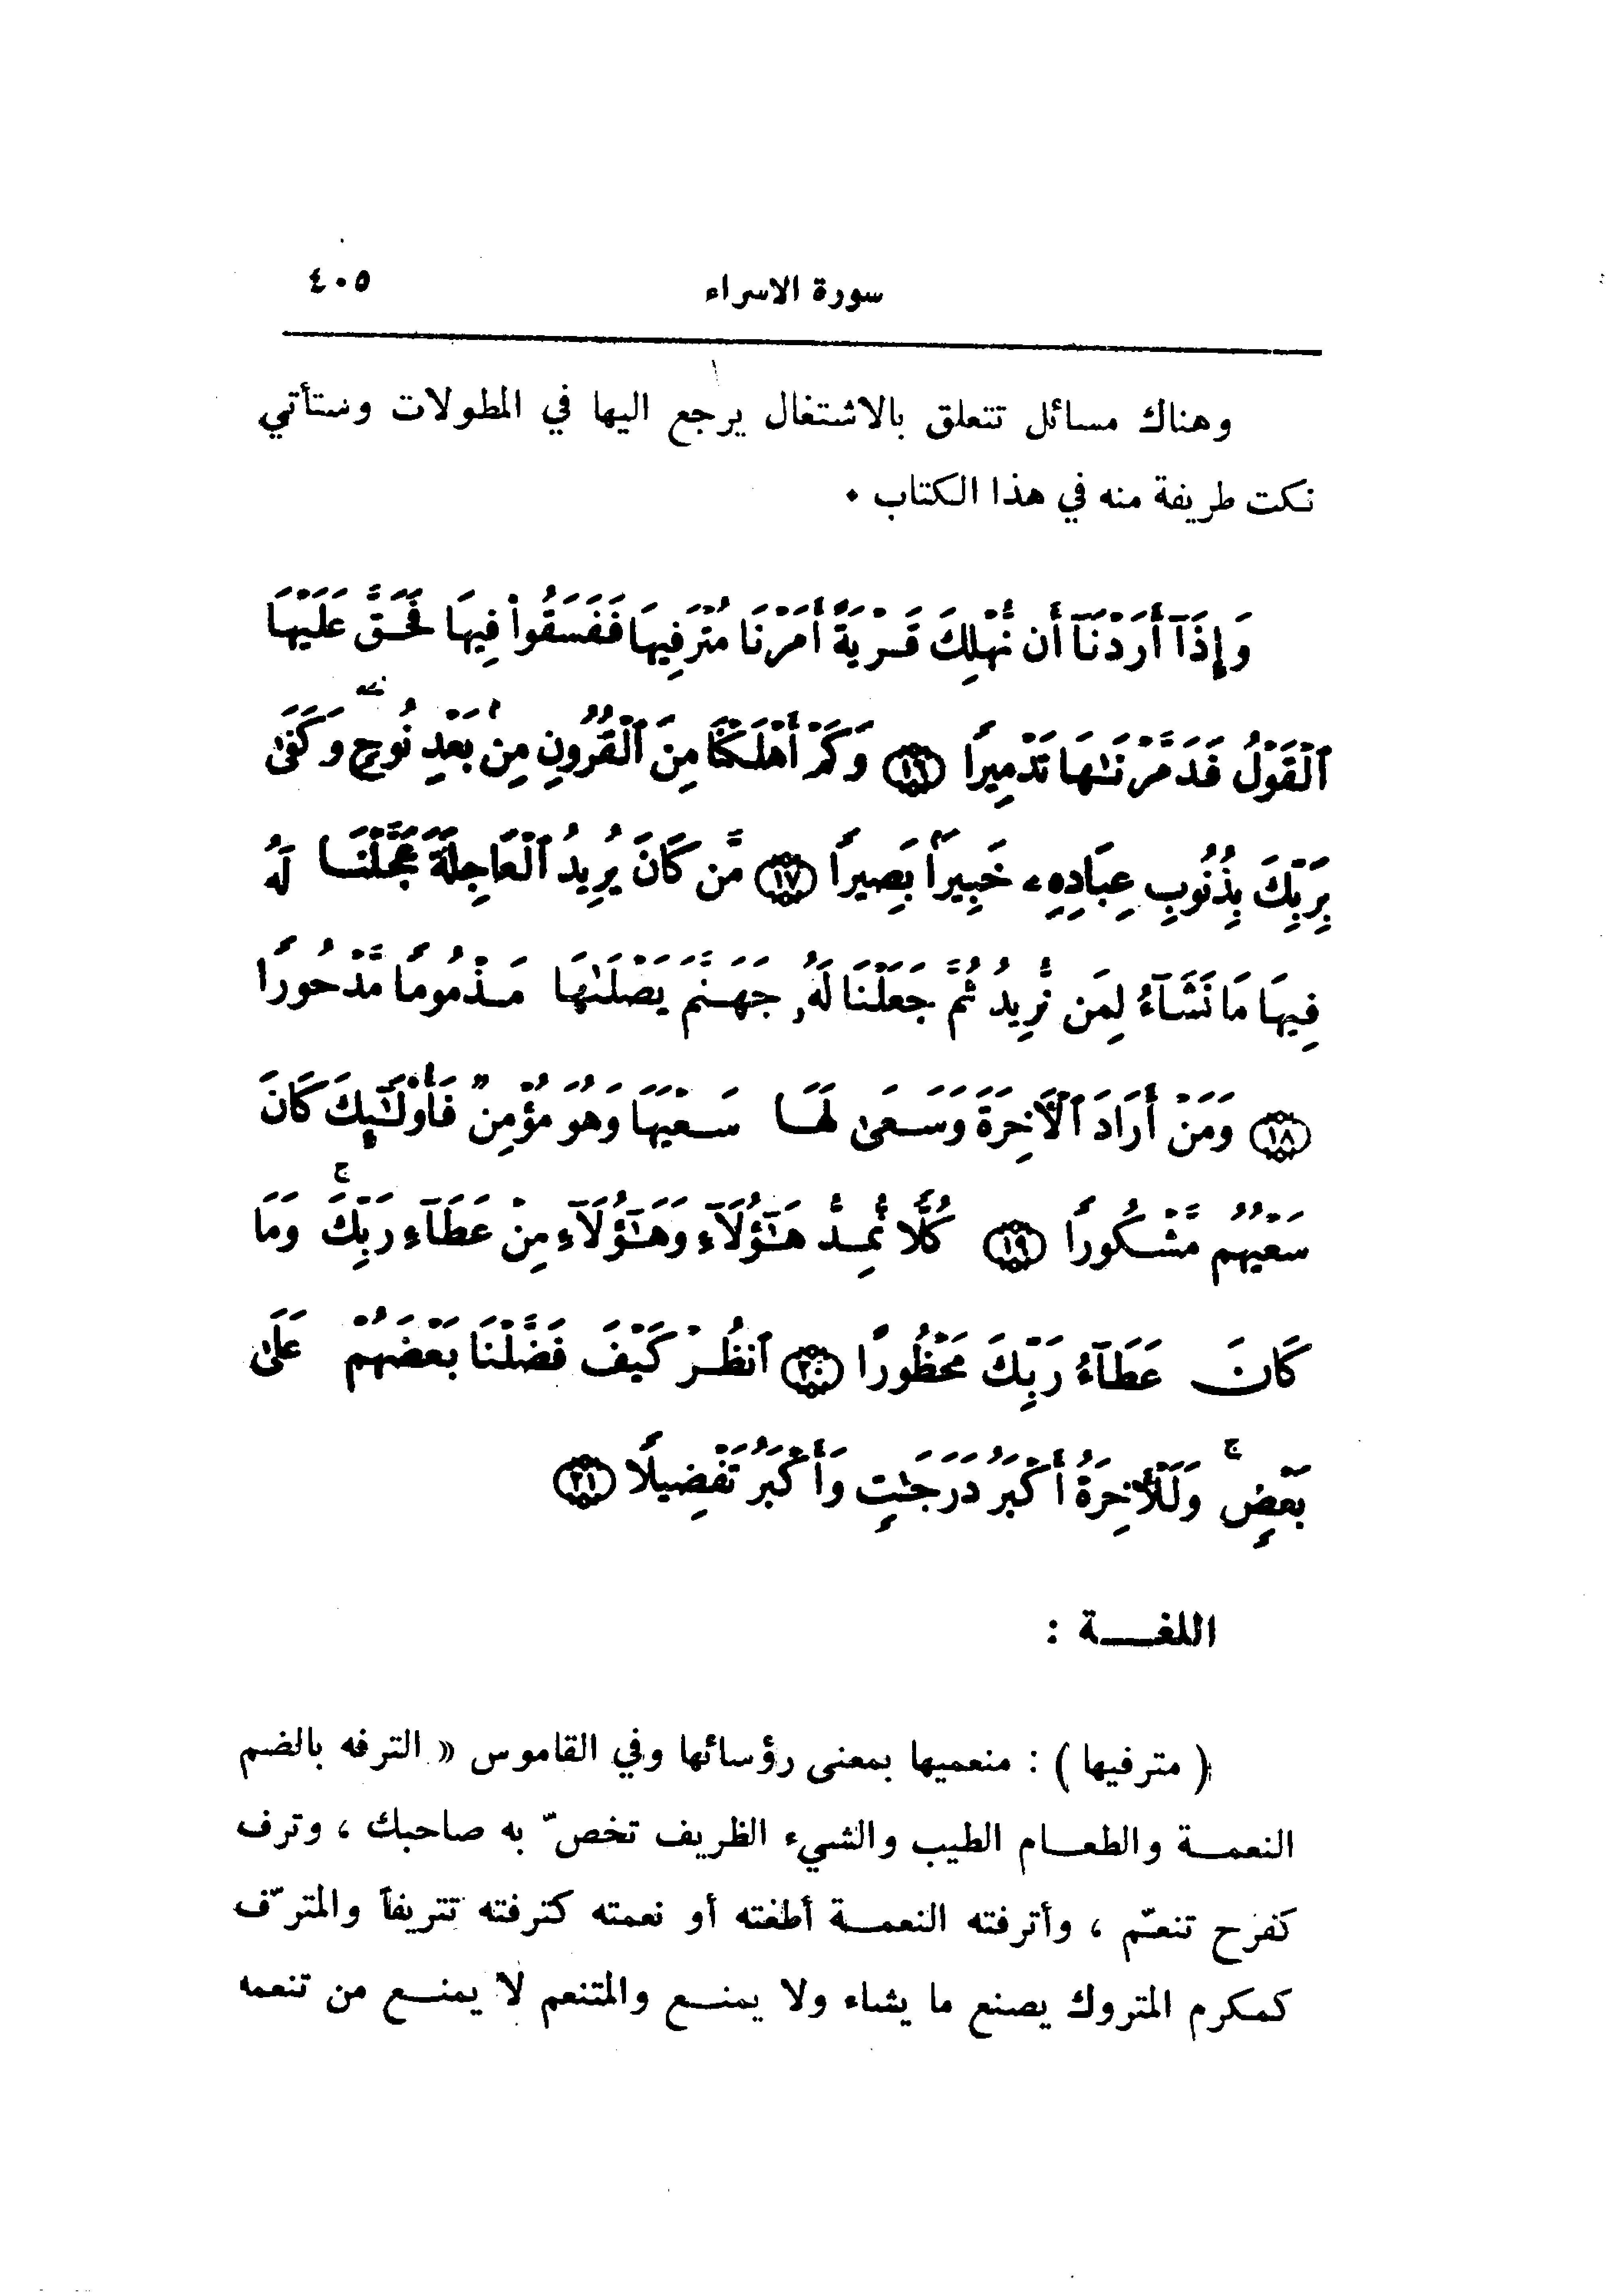 سورة الاسراء ٤٠٥
وهناك مسائل تتعلق بالاشتغال يرجع اليها في المطولات وستأتي
نكت طريفة منه في هذا الكتاب ٠
وَإِذَآ أَرَدْنَآ أَن نُّهْلِكَ قَرْيَةً أَمَرْنَا مُتْرَفِيهَا فَفَسَقُواْ فِيهَا فَحَقَّ عَلَيْهَا
ٱلْقَوْلُ فَدَمَّرْنَٰهَا تَدْمِيرًا ١٦ وَكَمْ أَهْلَكْنَا مِنَ ٱلْقُرُونِ مِنۢ بَعْدِ نُوحٍ ۗ وَكَفَىٰ
بِرَبِّكَ بِذُنُوبِ عِبَادِهِۦ خَبِيرَۢا بَصِيرًا ١٧ مَّن كَانَ يُرِيدُ ٱلْعَاجِلَةَ عَجَّلْنَا لَهُۥ
فِيهَا مَا نَشَآءُ لِمَن نُّرِيدُ ثُمَّ جَعَلْنَا لَهُۥ جَهَنَّمَ يَصْلَىٰهَا مَذْمُومًا مَّدْحُورًا
١٨ وَمَنْ أَرَادَ ٱلْأَخِرَةَ وَسَعَىٰ لَهَا سَعْيَهَا وَهُوَ مُؤْمِنٌ فَأُوْلَٰٓئِكَ كَانَ
سَعْيُهُم مَّشْكُورًا ١٩ كُلًّا نُّمِدُّ هَٰٓؤُلَآءِ وَهَٰٓؤُلَآءِ مِنْ عَطَآءِ رَبِّكَ ۚ وَمَا
كَانَ عَطَآءُ رَبِّكَ مَحْظُورًا ٢٠ ٱنظُرْ كَيْفَ فَضَّلْنَا بَعْضَهُمْ عَلَىٰ
بَعْضٍ ۚ وَلَلْأَخِرَةُ أَكْبَرُ دَرَجَٰتٍ وَأَكْبَرُ تَفْضِيلًا ٢١
اللغـــة :
( مترفيها ) : منعميها بمعنى رؤسائها وفي القاموس « الترفه بالضم
النعمــة والطعــام الطيب والشيء الظريف تخصّ به صاحبك ، وترف
كفرح تنعّم ، وأترفته النعمــة أطغته أو نعمته كترفته تتريفاً والمترّف
كمكرم المتروك يصنع ما يشاء ولا يمنــع والمتنعم لا يمنــع من تنعمه